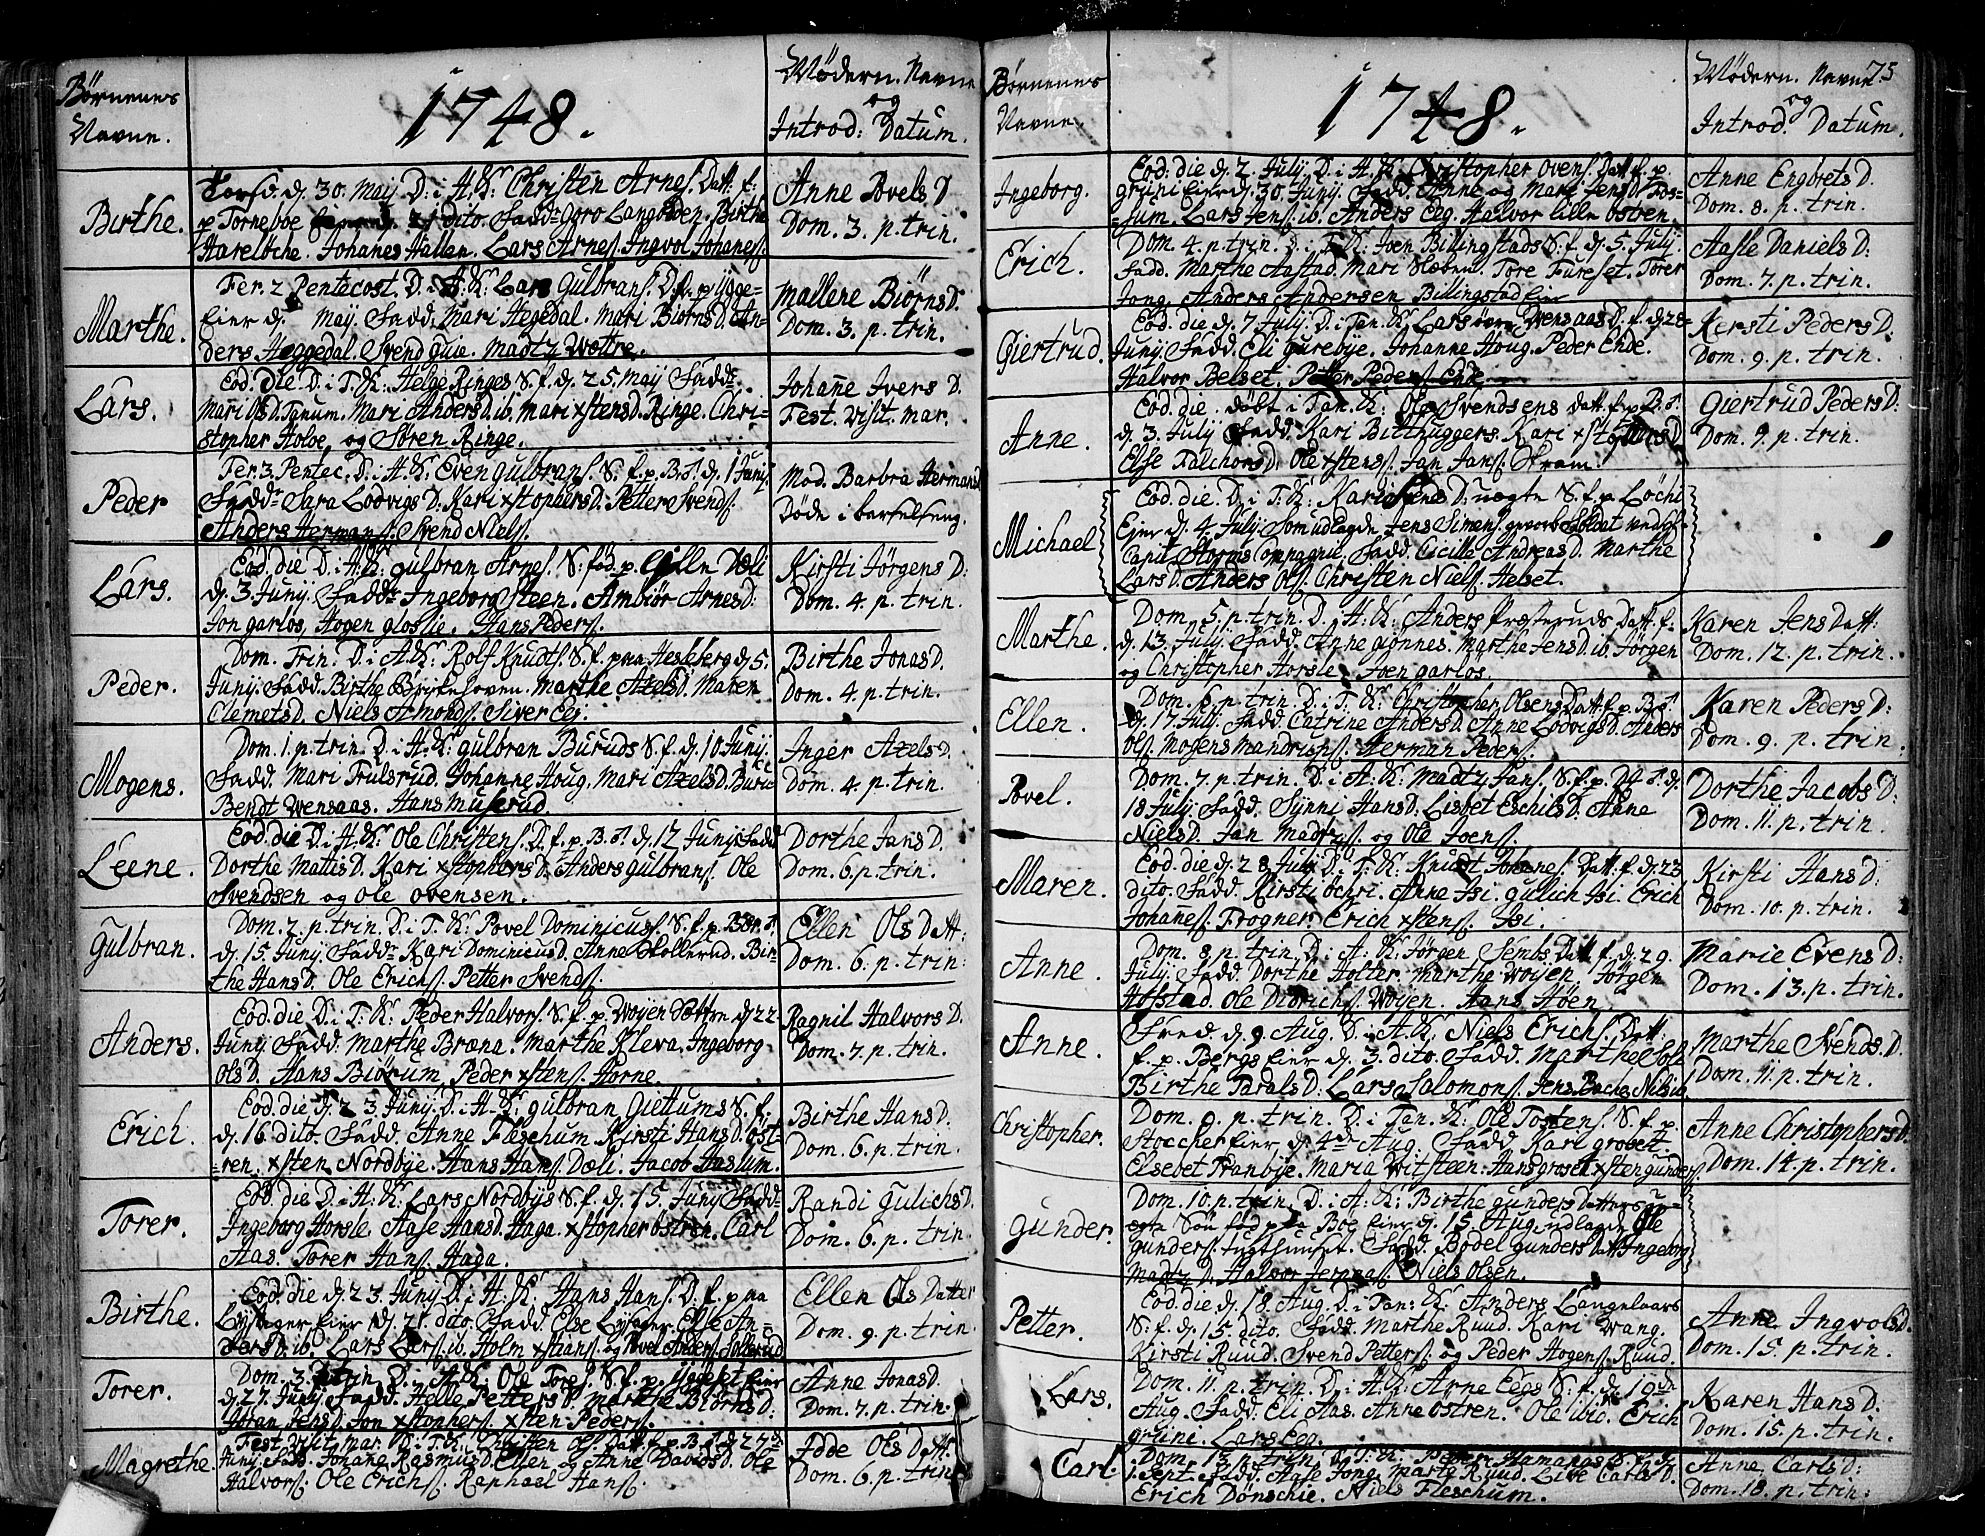 Börnenes
Navne.
1748.
Mödern. Navne
og
Introd: Datum.
Birthe.
Torsd. d. 30. Maij D: i A: K: Christen Arnes. Datt: f:
p Torneboe Eier d. 21 dito. Fadd: Goro Langböden. Birthe
Harelöche. Johanes Hallen. Lars Arnes. Ingvol Johanes.
Anne Povels D
Dom. 3. p. trin.
Marthe.
Fer. 2 Pentecost. D. i A: K: Lars Gulbrans. D. f. p Ygge-
Eier d. Maij. Fadd: Mari Hegedal. Mari Biörns D. An-
ders Heggedal. Svend Guie. Madtz Wöttre.
Mallene Biörns D:
Dom. 3. p. trin.
Lars.
Eod. die. D. i T: K: Helge Ringes S. f. d. 25. Maij Fadd:
Mari Ols D. Tanum. Mari Anders D. ib. Mari xstens D. Ringe. Chri-
stopher Holoe, og Sören Ringe.
Johañe Ivers D.
Fest. Visit. Mar.
Peder
Fer. 3. Pentec. D. i A: K: Even Gulbrans. S. f. p. B. d. 1 Junij
Fadd: Sara Lodvigs D. Kari xstophers D. Petter Svends.
Anders Hermans. Svend Niels.
Mod. Barbra Hermans D
Döde i barselseng.
Lars.
Eod. die D. i A: K: Gulbran Arnes. S: föd. p. Lille Dæli
d. 3 Junij. Fadd: Ingeborg Steen. Ambiör Arnes D:
Jon Garlös, Hogen Gloslie. Hans Peders.
Kirsti Jörgens D:
Dom. 4. p. trin.
Peder.
Dom. Trin. D. i A: K: Rolf Knudts. S. f. paa Hesleberg d. 5.
Junij. Fadd. Birthe Birkeloven. Marthe Axels D. Maren
Clemets D. Niels Amonds. Siver Eeg.
Birthe Jonas D.
Dom. 4. p. trin.
Mogens.
Dom. 1. p. trin. D. i A: K: Gulbran Buruds S. f. d. 10 Junij.
Fadd. Mari Trulsrud. Johanne Houg. Mari Axels D. Buru
Bendt Wensaas. Hans Muserud.
Inger Axels D.
Dom. 4. p. trin.
Leene.
Eod. die D. i A: K: Ole Christens. D. f. p. B. d. 12 Junij Fadd
Dorthe Mattis D. Kari xstophers D. Anders Gulbrans. Ole
Svendsen og Ole Ovensen.
Dorthe Jans D.
Dom. 6. p. trin.
Gulbran.
Dom. 2. p. trin. D. i T: K: Povel Dominicus. S. f. p. B.
d. 15. Junij. Fadd: Kari Dominicus D. Anne Skollerud. Bir-
the Hans D. Ole Erichs. Petter Svends.
Ellen Ols Datt:
Dom. 6. p. trin:
Anders.
Eod. die D. i T: K: Peder Halvors. S. f. p. Wöyen Sættre d. 22
Junij. Fadd. Marthe Bræna. Marthe Kleva. Ingeborg
Ols D. Hans Biörum. Peder xstens. Horne.
Ragnil Halvors D.
Dom. 7. p. trin.
Erich.
Eod. die d. 23. Junij. D. i A: K: Gulbran Giettums S. f.
d. 16. dito. Fadd. Anne Fleschum. Kirsti Hans D. Öst-
ren. xsten Nordbye. Hans Hans. Dæli. Jacob Haslum.
Birthe Hans D.
Dom. 6. p. trin.
Torer.
Eod. die D. i A: K: Lars Nordbÿs S. f. d. 15. Junij Fadd:
Ingeborg Horsle. Aase Hans D. Haga. xstopher Östren. Carl
Aas. Torer Hans. Haga.
Randi Gulichs D.
Dom. 6. p. trin.
Birthe.
Eod. die d. 23. Junij. D. i A: K. Hans Hans. D. f. p paa
Lysager Eier d. 21. dito. Fadd. Else Lysager. Elle An-
ders D. ib. Lars Lars. ib. Holm xstians. og Povel Anders. Sollerud
Ellen Ols Datter
Dom. 9. p. trin.
Torer.
Dom. 3. p. trin. D. i A: K: Ole Tores. S. f. p. Yggeset Eier
d. 27. Junij. Fadd. Helle Petters D. Marthe Biörns D.
Göran Jens D. Jon xstophers. xsten Peders.
Anne Jonas D.
Dom. 7. p. trin.
Magrethe.
Fest. Visit. Mar. D. i T: K: Christen Ols. Datt. f. p. B. d. 27
Junij. Fadd. Johane Rasmus D. Ellen og Anne Davids D. Ole
Halvors. Ole Erichs. Raphael Hans.
Idde Ols Datt.
Dom. 6. p. trin.
Börnenes
Navne.
1748.
Mödern. Navne 75
og
Introd. Datum.
Ingeborg.
Eod. die d. 2. Julij. D. i A: K: Christopher Ovens. Datt. f. p.
Grüni Eier d. 30. Junij. Fadd. Anne og Mari Jens D. Fos-
sum. Lars Jens. ib. Anders Eeg. Halvor lille Östren.
Anne Engbrets D.
Dom. 8. p. trin.
Erich.
Dom. 4. p. trin. D. i T: K: Joen Billingstads S. f. d. 5. Julij.
Fadd. Marthe Aastad. Mari Slæben. Tore Fureset. Torer
Jong. Anders Andersen Billingstad Eier
Aasle Daniels D:
Dom. 7. p. trin.
Giertrud.
Eod. die d. 7 Julij. D. i Tan. K: Lars övre Wensaas D. f. d. 28
Junij. Fadd. Eli Gurebye. Johanne Houg. Peder Ende.
Halvor Belset. Petter Peders. Ende
Kersti Peders D.
Dom. 9. p. trin.
Anne.
Eod. die. döbt i Tan. K: Ole Svendsens Datt. f. p. B.
d. 3. Julij Fadd. Kari Birthuggers. Kari xstophers D.
Else Falchors D. Ole xstens. Jan Jans. Skram.
Giertrud Peders D:
Dom. 9. p. trin.
Michael
Eod. die. D. i T: K: Kari Svens D. uægte S. f. p. Löchi
Eier d. 4 Julij. Som udlagde Jens Simens. gevorb. Soldat ved
Capit. Storms Compagnie. Fadd. Cicille Andreas D. Marthe
Lars D. Anders Ols. Christen Niels. Helset.
Marthe.
Dom. 5. p. trin. D. i A: K: Anders Præsteruds Datt. f.
d. 13. Julij. Fadd. Anne Giönnes. Marthe Jens D. ib. Jörgen
og Christopher Horsle. Joen Garlös.
Karen Jens Datt:
Dom. 12. p. trin.
Ellen.
Dom. 6. p. trin. D. i T: K: Christopher Olsens Datt. f. p. B.
d. 17. Julij. Fadd. Catrine Anders D. Anne Lodvigs D. Anders
Ols. Mogens Mandrichs. Herman Peders.
Karen Peders D:
Dom. 9. p. trin.
Povel.
Dom. 7. p. trin. D. i A: K: Madtz Jans. S. f. p. d.
18 Julij. Fadd. Synni Hans D. Lisbet Eschils D. Anne
Niels D. Jan Madtzs. og Ole Joens.
Dorthe Jacobs D:
Dom. 11. p. trin.
Maren.
Eod. die d. 28. Julij D. i T: K: Knudt Johanes. Datt. f. d. 23
dito. Fadd. Kirsti Öchri. Anne Isi. Gulich Isi. Erich
Johanes. Frogner. Erich xstens. Isi.
Kirsti Hans D:
Dom. 10. p. trin.
Anne.
Dom. 8. p. trin. D. i A: K: Jörgen Sembs. Datt. f. d. 29.
Julij. Fadd Dorthe Holter. Marthe Wöyen. Jörgen
Hofstad. Ole Didrichs. Wöyen. Hans Höen
Marie Evens D:
Dom. 13. p. trin.
Anne.
d. 9. Aug. D. i A: K: Niels Erichs. Datt:
f. p. Bergs Eier d. 3. dito. Fadd. Marthe
Birthe Parals D. Lars Salomons. Jens Bache.
Marthe Svends D.
Dom. 11. p. trin.
Christopher.
Dom. 9. p. trin. D. i Tan. K: Ole Tostens. S. f. p.
Stoccher Eier d. 4de Aug. Fadd. Kari Groset.
Elsebet Tranbye. Maria Witsteen. Hans Groset. xsten Gunders.
Anne Christophers D.
Dom. 14. p. trin.
Gunder.
Dom. 10. p. trin. D. i A: K: Birthe Gunders Datters u-
ægte Sön föd p aa Boe Eier d. 15. Aug. udlagde Ole
Gunders. Tugthuuset. Fadd. Bodel Gunders Datt. Ingeborg
Madtz D. Halvor Jernaas. Niels Olsen.
Petter.
Eod. die d. 18. Aug. D. i Tan: K: Anders Langelaars
S. f. d. 15. dito. Fadd. Marthe Ruud. Kari Wang.
Kirsti Ruud. Svend Petters. og Peder Hogens. Ruud.
Anne Ingvols D.
Dom. 15. p. trin.
Lars.
Dom. 11. p. trin. D. i A: K: Arne Eegs S. f. d. 19de
Aug. Fadd. Eli Aas. Anne Östren. Ole ibid. Erich
Grüne. Lars Eeg.
Karen Hans D.
Dom. 15. p. trin.
Carl
Dom. 13. p. trin. D. i T: K: Peter S. f. d.
1. Sept. Fadd. Aase Jong. Marte Ruud. Live Carls D.
Erich Dönschie. Niels Fleschum.
Anne Carls D:
Dom. 18. p. trin: